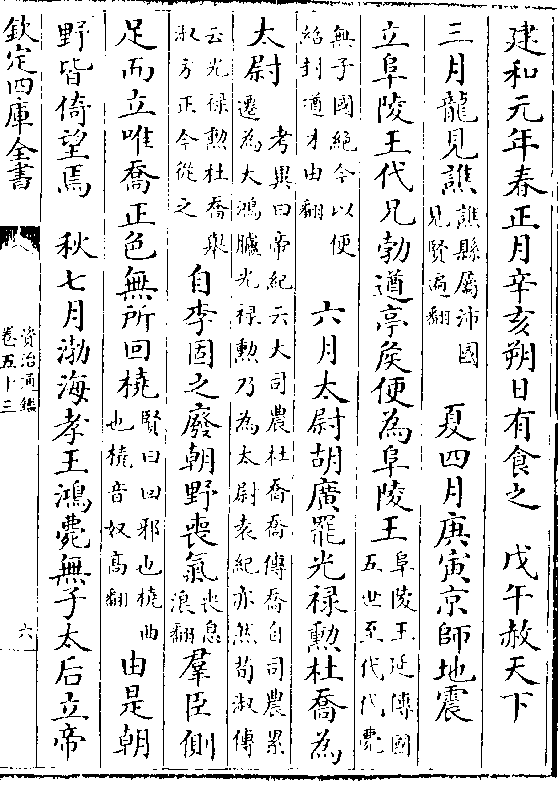 建和元年春正月辛亥朔日有食之　戊午赦天下
三月龍見譙譙縣屬沛國見賢遍翻　夏四月庚寅京師地震
立阜陵王代兄勃遒亭矦便為阜陵王阜陵王延傳國五世至代代薨
無子國絶今以便紹封遒才由翻　六月太尉胡廣罷光禄勲杜喬為
太尉考異曰帝紀云大司農杜喬喬傳喬自司農累遷為大鴻臚光禄勲乃為太尉袁紀亦然荀淑傳
云光禄勲杜喬舉淑方正今從之　自李固之廢朝野喪氣喪息浪翻羣臣側
足而立唯喬正色無所回橈賢曰回邪也橈曲也橈音奴髙翻由是朝
野皆倚望焉　秋七月渤海孝王鴻薨無子太后立帝
欽定四庫全書
資治通鑑
卷五十三
六